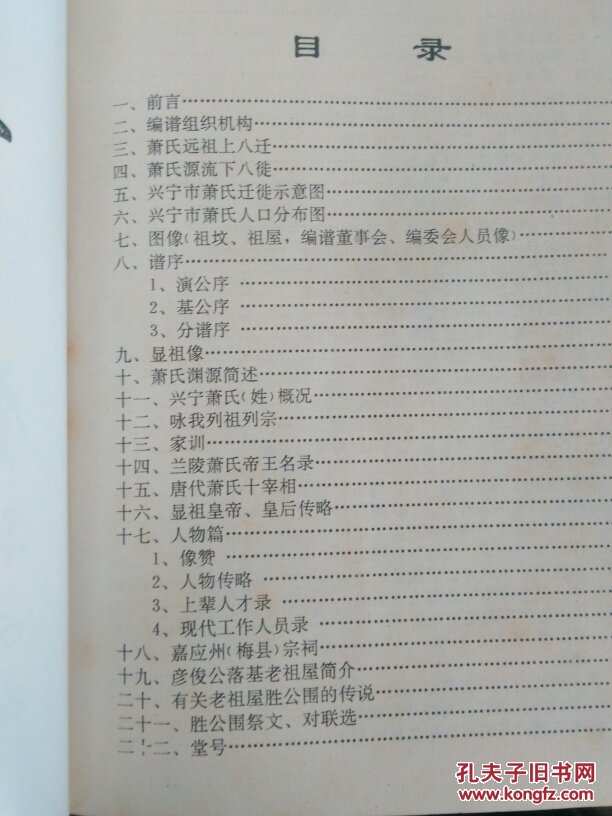 目 录
一、前言
二、编谱组织机构
三、萧氏远祖上八迁
四、萧氏源流下八徙
五、兴宁市萧氏迁徙示意图
六、兴宁市萧氏人口分布图
七、图像(祖坟、祖屋，编谱董事会、编委会人员像)
八、谱序
1、演公序
2、基公序
3、分谱序
九、显祖像
十、萧氏渊源简述
十一、兴宁萧氏(姓)概况
十二、咏我列祖列宗
十三、家训
十四、兰陵萧氏帝王名录
十五、唐代萧氏十宰相
十六、显祖皇帝、皇后传略
十七、人物篇
1、像赞
2、人物传略
3、上辈人才录
4、现代工作人员录
十八、嘉应州(梅县)宗祠
十九、彦俊公落基老祖屋简介
二十、有关老祖屋胜公围的传说
二十一、胜公围祭文、对联选
二十二、堂号
孔夫子旧书网
www.kongfz.com